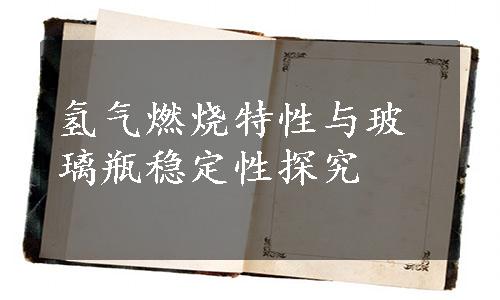 氢气燃烧特性与玻
璃瓶稳定性探究